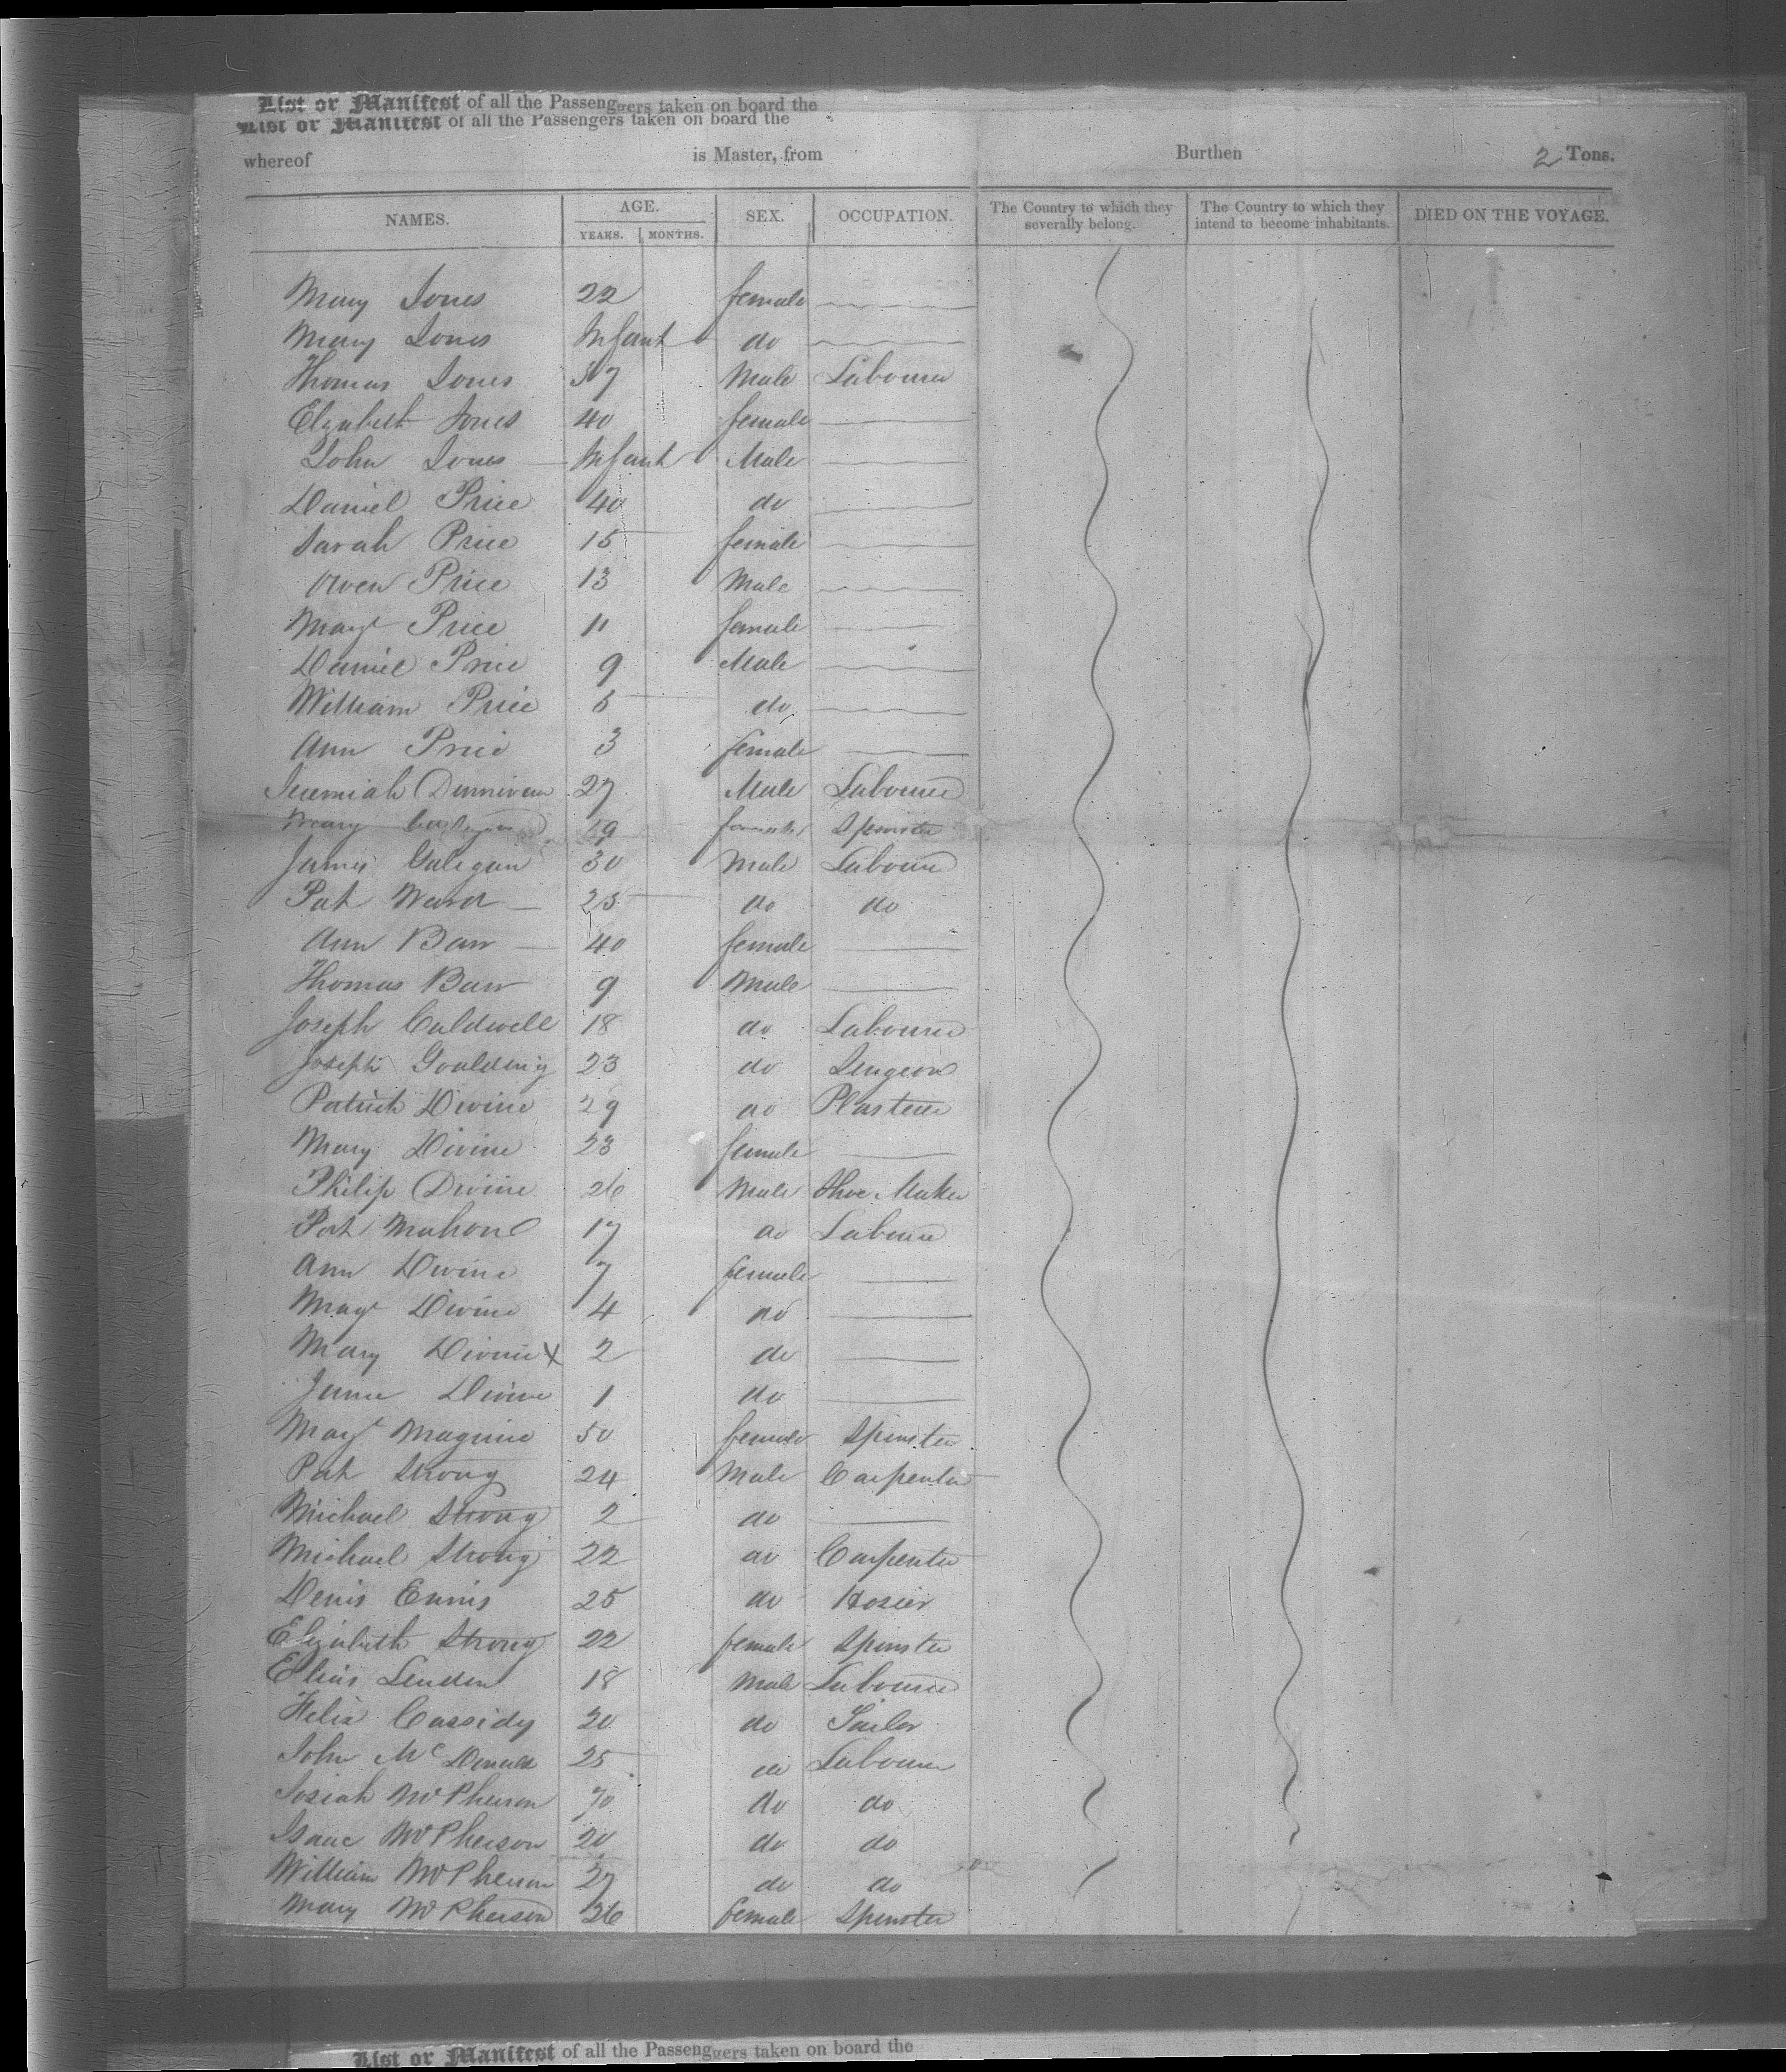 List or Manifest of all the Passenggers taken on board the
List or Manifest of all the Passengers taken on board the
whereof is Master, from Burthen 2 Tons.
NAMES. AGE. YEARS. MONTHS. SEX. OCCUPATION. The Country to which they severally belong. The Country to which they intend to become inhabitants. DIED ON THE VOYAGE.
Mary Jones 22 female
Mary Jones Infant do
Thomas Jones 37 Male Labourer
Elizabeth Jones 40 female
John Jones Infant Male
Daniel Price 40 do
Sarah Price 15 female
Owen Price 13 Male
Margt Price 11 female
Daniel Price 9 Male
William Price 5 do
Ann Price 3 female
Jeremiah Dunnivan 27 Male Labourer
Mary 19 female Spinster
James Galegan 30 Male Labourer
Pat Ward 25 do do
Ann Barr 40 female
Thomas Barr 9 Male
Joseph Caldwell 18 do Labourer
Joseph Goulding 23 do Surgeon
Patrick Divine 29 do Plasterer
Mary Divine 23 female
Philip Divine 26 Male Shoe Maker
Pat Mahon 17 do Labourer
Ann Divine 7 female
Margt Divine 4 do
Mary Divine X 2 do
Jane Divine 1 do
Margt Maguire 50 female Spinster
Pat Strong 24 Male Carpenter
Michael Strong 2 do
Michael Strong 22 do Carpenter
Denis Ennis 25 do Hosier
Elizabeth Strong 22 female Spinster
Elias 18 Male Labourer
Felix Cassidy 20 do Tailor
John McDonald 25 do Labourer
Josiah McPherson 70 do do
Isaac McPherson 20 do do
William McPherson 27 do do
Mary McPherson 26 female Spinster
List or Manifest of all the Passenggers taken on board the